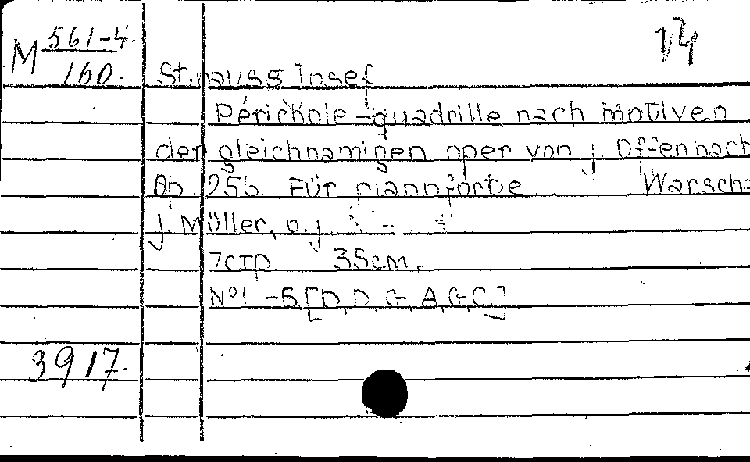 M 561-4
160.
14
Strauss Josef
Périchole-quadrille nach motiven
der gleichnamigen oper von j. Offenbach
Op. 256 Für pianoforte Warscha
J. Müller, o.j.
7стр 35см.
№1-5 [D, D, G, A, G, C.]
3917.